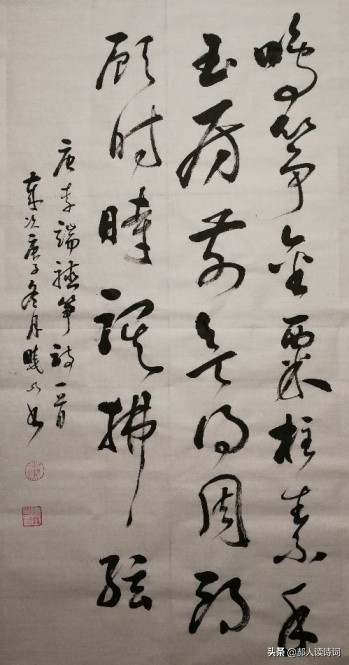 鳴筝金粟柱素手
玉房前欲得周郎
顾时時誤拂弦
唐李端聽筝诗一首
歲次庚子冬月曉
头条 @郝人读诗词